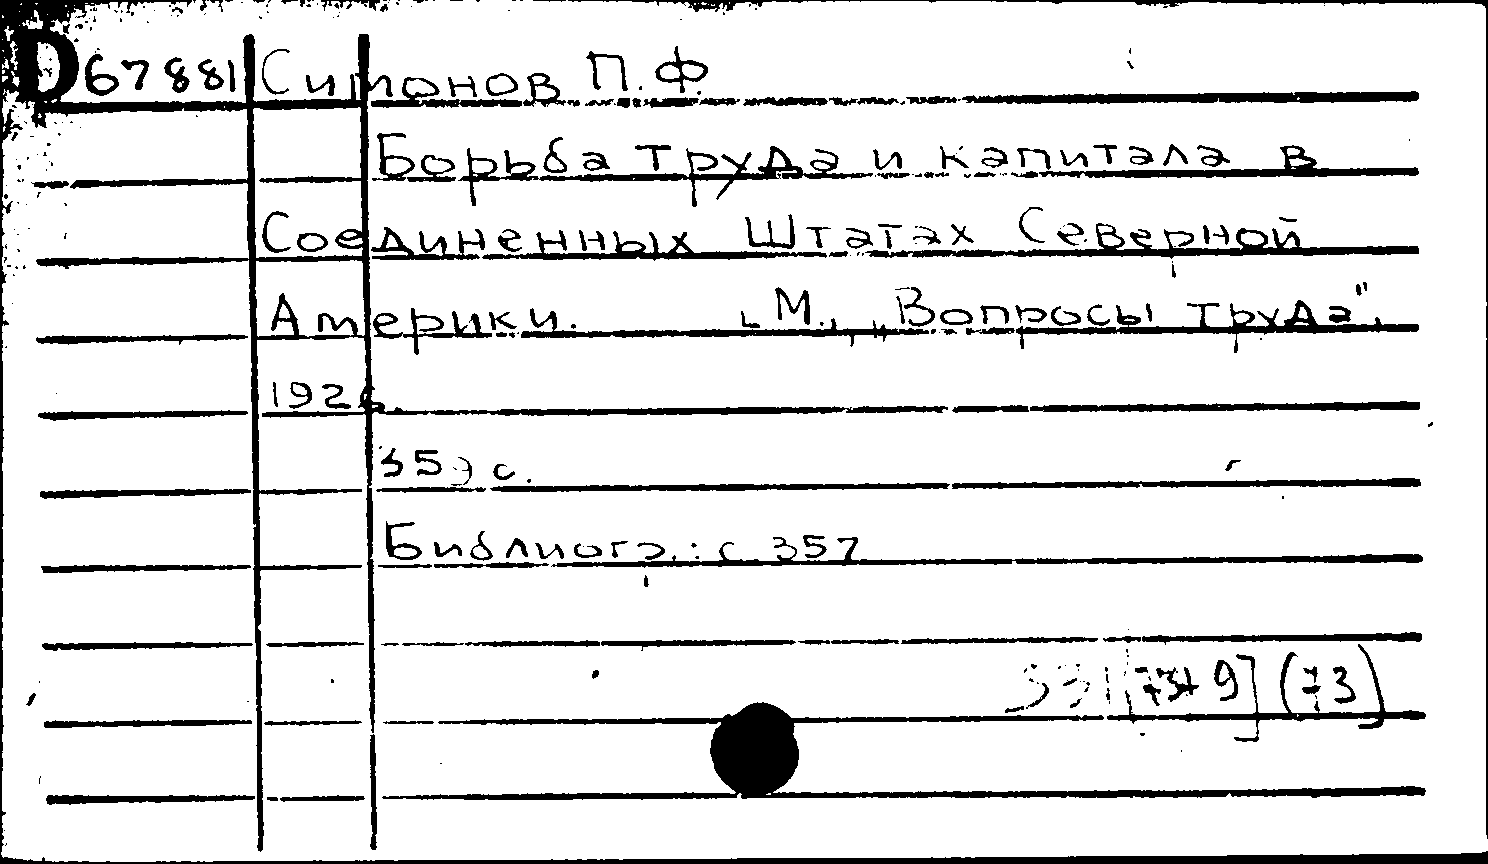 D67881 Симонов П.Ф.
Борьба труда и капитала в
Соединенных Штатах Северной
Америки. М., „Вопросы труда",
1926.
359 с.
Библиогр.: с 357
(73)